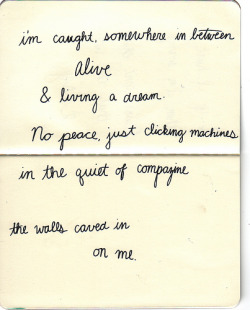 i'm caught, somewhere in between
alive
& living a dream.
No peace, just clicking machines
in the quiet of compazine
the walls caved in
on me.